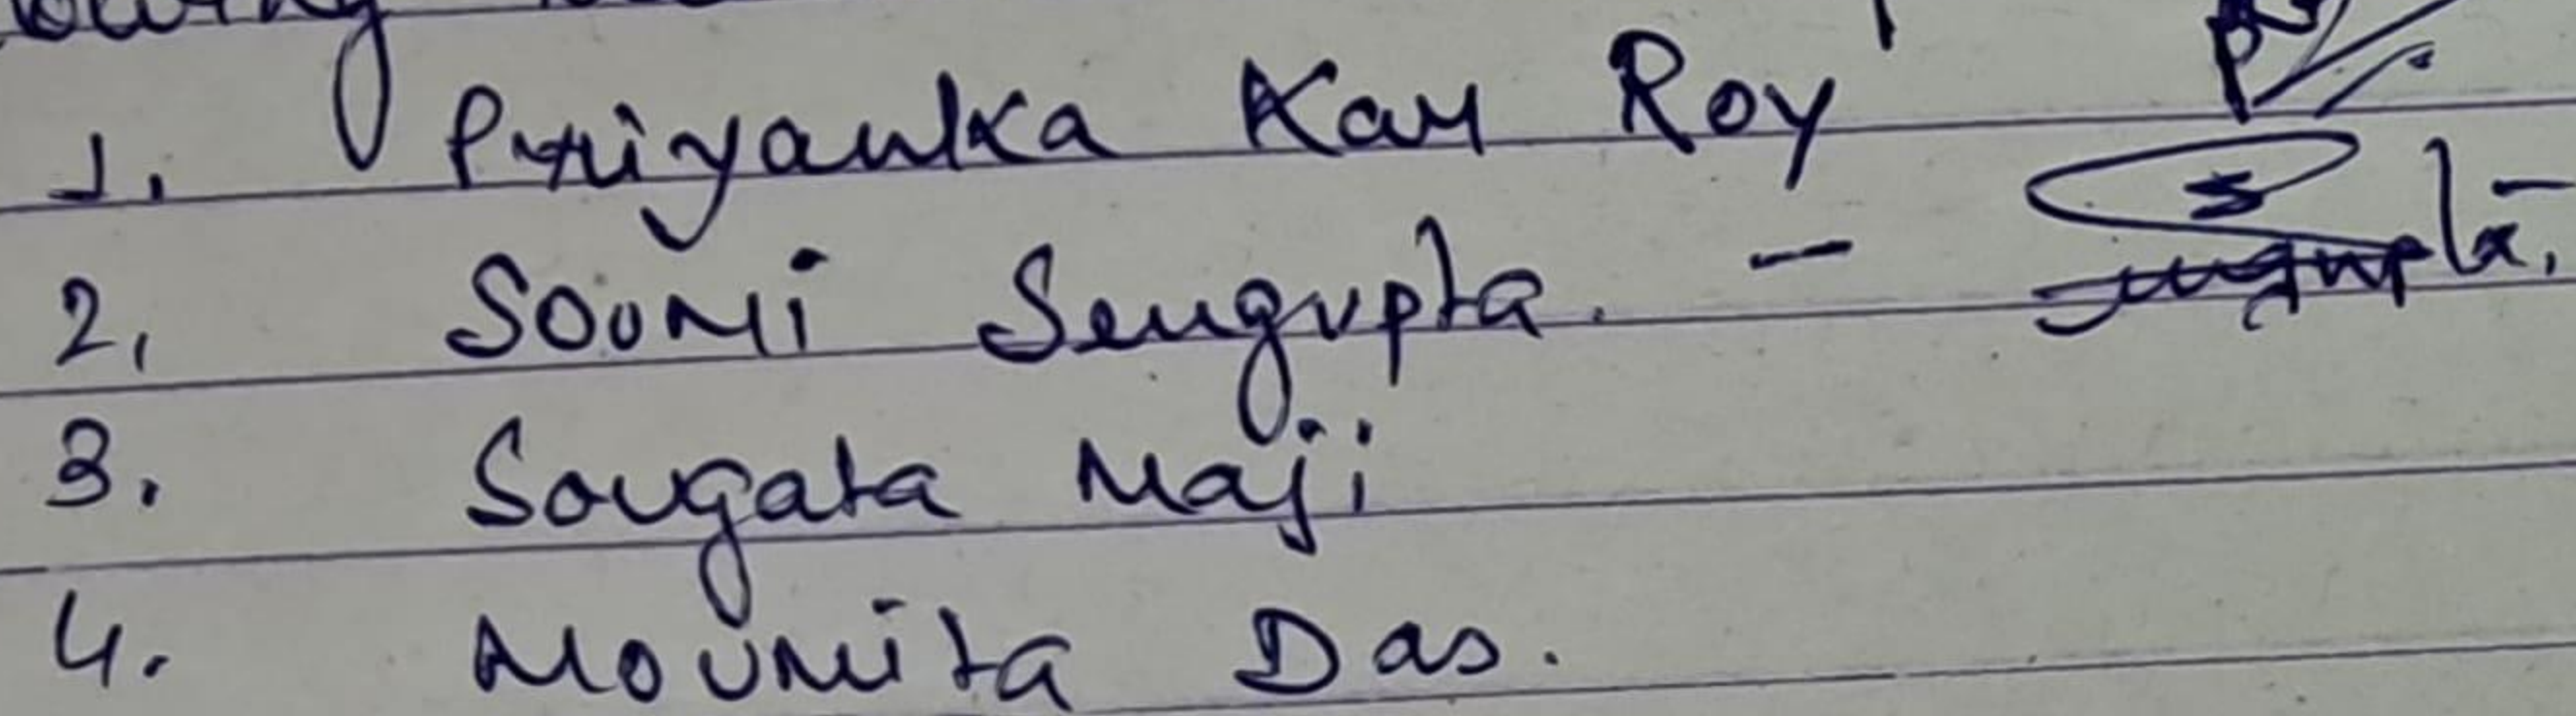 1. Priyanka Kar Roy
2. Soumi Sengupta. -
3. Sougata Maji
4. Moumita Das.